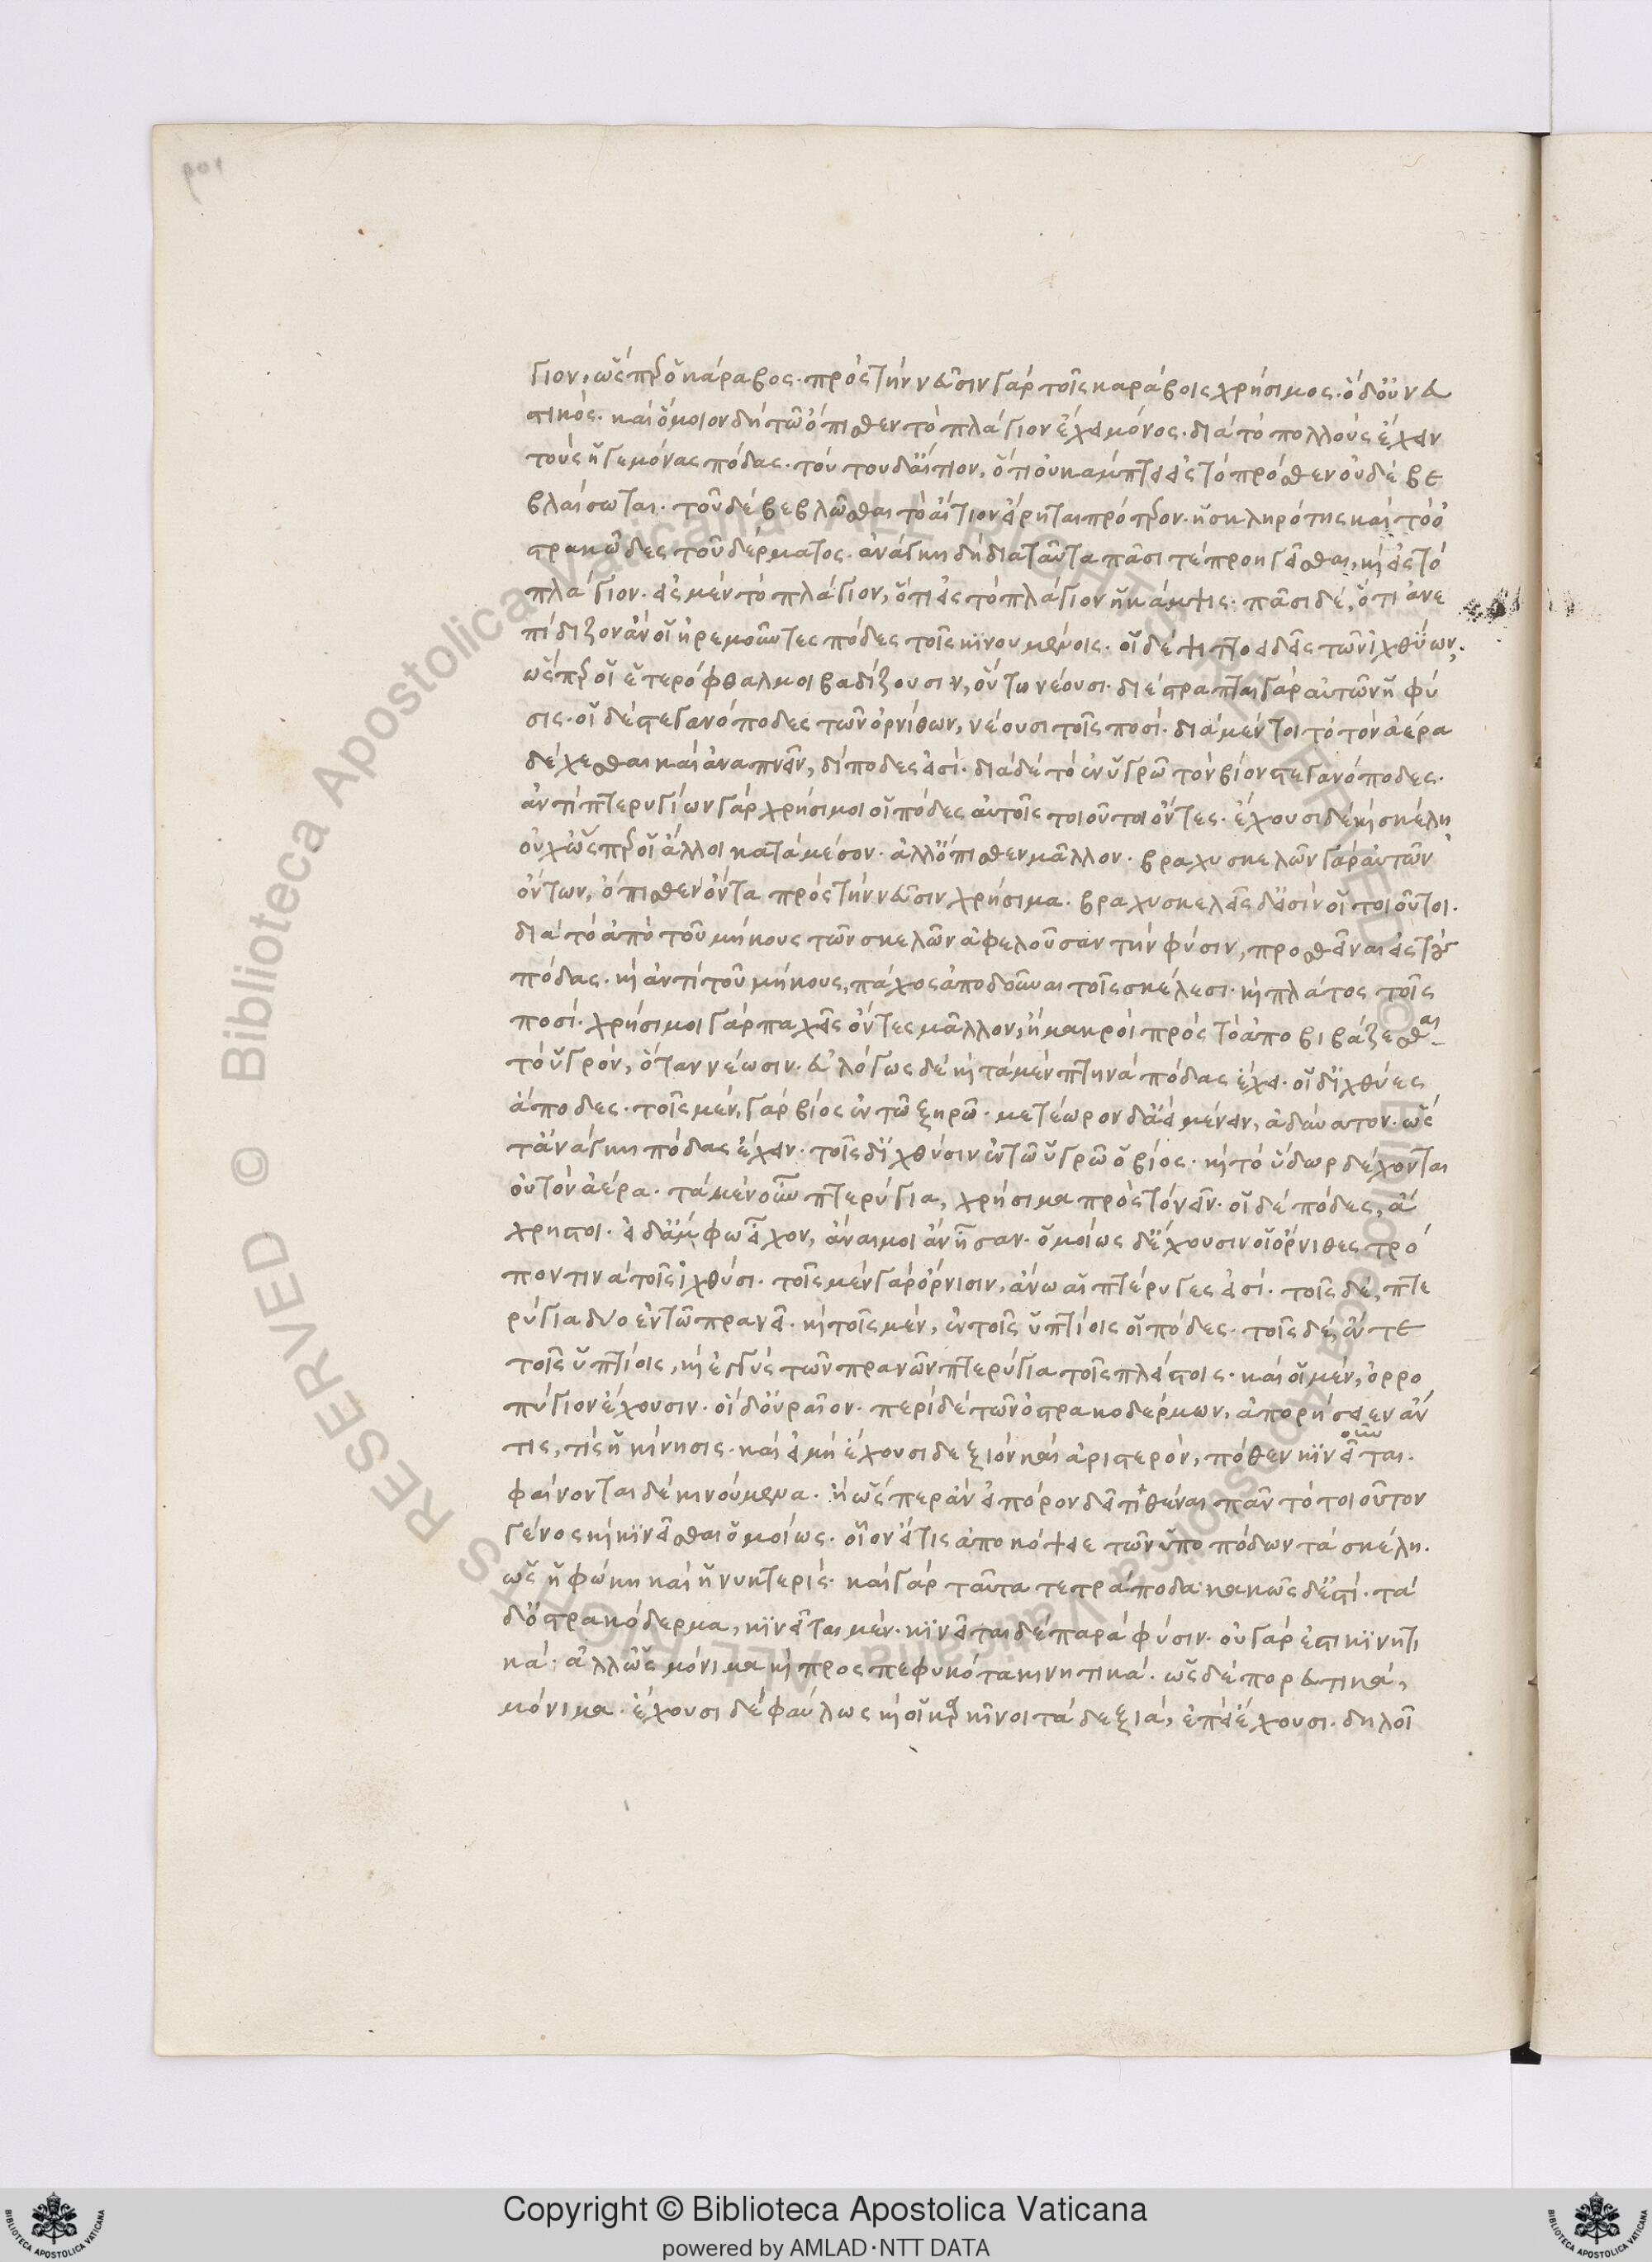 γιον, ὥσπερ ὁ κάραβος. πρὸς τὴν νεῦσιν γὰρ τοῖς καράβοις χρήσιμος. ὁ δ᾽ οὐ νευ
στικός. καὶ ὅμοιον δὴ τῷ ὄπισθεν τὸ πλάγιον ἔχει μόνος. διὰ τὸ πολλοὺς ἔχειν
τοὺς ἡγεμόνας πόδας. τούτου δ᾽ αἴτιον, ὅτι οὐ κάμπτει εἰς τὸ πρόσθεν οὐδὲ βε
βλαίσωται. τοῦ δὲ βεβλῶσθαι τὸ αἴτιον εἴρηται πρότερον. ἡ σκληρότης καὶ τὸ ὀ
στρακῶδες τοῦ δέρματος. ἀνάγκη δὴ διὰ ταῦτα πᾶσί τε προηγεῖσθαι, καὶ εἰς τὸ
πλάγιον. εἰς μὲν τὸ πλάγιον, ὅτι εἰς τὸ πλάγιον ἡ κάμψις. πᾶσι δέ, ὅτι ἀνε
πόδιζον ἂν οἱ ἠρεμοῦντες πόδες τοῖς κινουμένοις. οἱ δὲ ψιττοειδεῖς τῶν ἰχθύων,
ὥσπερ οἱ ἑτερόφθαλμοι βαδίζουσιν, οὕτω νέουσι. διέστραπται γὰρ αὐτῶν ἡ φύ
σις. οἱ δὲ στεγανόποδες τῶν ὀρνίθων, νέουσι τοῖς ποσί. διὰ μέντοι τὸ τὸν ἀέρα
δέχεσθαι καὶ ἀναπνεῖν, δίποδες εἰσί. διὰ δὲ τὸ ἐν ὑγρῷ τὸν βίον στεγανόποδες.
ἀντὶ πτερυγίων γὰρ χρήσιμοι οἱ πόδες αὐτοῖς τοιοῦτοι ὄντες. ἔχουσι δὲ καὶ σκέλη
οὐχ ὥσπερ οἱ ἄλλοι κατὰ μέσον. ἀλλ᾽ ὄπισθεν μᾶλλον. βραχυσκελῶν γὰρ αὐτῶν
ὄντων, ὄπισθεν ὄντα πρὸς τὴν νεῦσιν χρήσιμα. βραχυσκελεῖς δ᾽ εἰσὶν οἱ τοιοῦτοι.
διὰ τὸ ἀπὸ τοῦ μήκους τῶν σκελῶν ἀφελοῦσαν τὴν φύσιν, προσθεῖναι εἰς τοὺς
πόδας. καὶ ἀντὶ τοῦ μήκους, πάχος ἀποδοῦναι τοῖς σκέλεσι. καὶ πλάτος τοῖς
ποσί. χρήσιμοι γὰρ παχεῖς ὄντες μᾶλλον, ἢ μακροὶ πρὸς τὸ ἀποβιβάζεσθαι
τὸ ὑγρόν, ὅταν νέωσιν. εὐλόγως δὲ καὶ τὰ μὲν πτηνὰ πόδας ἔχει. οἱ δ᾽ ἰχθύες
ἄποδες. τοῖς μὲν, γὰρ βίος ἐν τῷ ξηρῷ. μετέωρον δ᾽ ἀεὶ μένειν, ἀδύνατον. ὥσ
τ᾽ ἀνάγκη πόδας ἔχειν. τοῖς δ᾽ ἰχθύσιν ἐν τῷ ὑγρῷ ὁ βίος. καὶ τὸ ὕδωρ δέχονται
οὐ τὸν ἀέρα. τὰ μὲν οὖν πτερύγια, χρήσιμα πρὸς τὸ νεῖν. οἱ δὲ πόδες, ἄ
χρηστοι. εἰ δ᾽ ἄμφω εἶχον, ἄναιμοι ἂν ἦσαν. ὁμοίως δ᾽ ἔχουσιν οἱ ὄρνιθες τρό
πον τινὰ τοῖς ἰχθύσι. τοῖς μὲν γὰρ ὄρνισιν, ἄνω αἱ πτέρυγες εἰσί. τοῖς δὲ, πτε
ρύγια δύο ἐν τῷ πρανεῖ. καὶ τοῖς μὲν, ἐν τοῖς ὑπτίοις οἱ πόδες. τοῖς δὲ, ἔν τε
τοῖς ὑπτίοις, καὶ ἐγγὺς τῶν πρανῶν πτερύγια τοῖς πλείστοις. καὶ οἱ μὲν, ὀρρο
πύγιον ἔχουσιν. οἱ δ᾽ οὐραῖον. περὶ δὲ τῶν ὀστρακοδέρμων, ἀπορήσειεν ἄν
τις, τίς ἡ κίνησις. καὶ εἰ μὴ ἔχουσι δεξιὸν καὶ ἀριστερόν, πόθεν κινεῖται.
φαίνονται δὲ κινούμενα. ἢ ὥσπερ ἀνάπηρον δεῖ τιθέναι πᾶν τὸ τοιοῦτον
γένος καὶ κινεῖσθαι ὁμοίως. οἷον εἴ τις ἀποκόψειε τῶν ὑποπόδων τὰ σκέλη.
ὡς ἡ φώκη καὶ ἡ νυκτερίς. καὶ γὰρ ταῦτα τετράποδα κακῶς δ᾽ ἐστί. τὰ
δ᾽ ὀστρακόδερμα, κινεῖται μέν. κινεῖται δὲ παρὰ φύσιν. οὐ γάρ ἐστι κινητι
κά. ἀλλ᾽ ὡς μόνιμα καὶ προσπεφυκότα κινητικά. ὡς δὲ πορευτικά,
μόνιμα. ἔχουσι δὲ φαύλως καὶ οἱ καρκῖνοι τὰ δεξιά, ἐπεὶ ἔχουσι. δηλοῖ
Copyright © Biblioteca Apostolica Vaticana
powered by AMLAD·NTT DATA